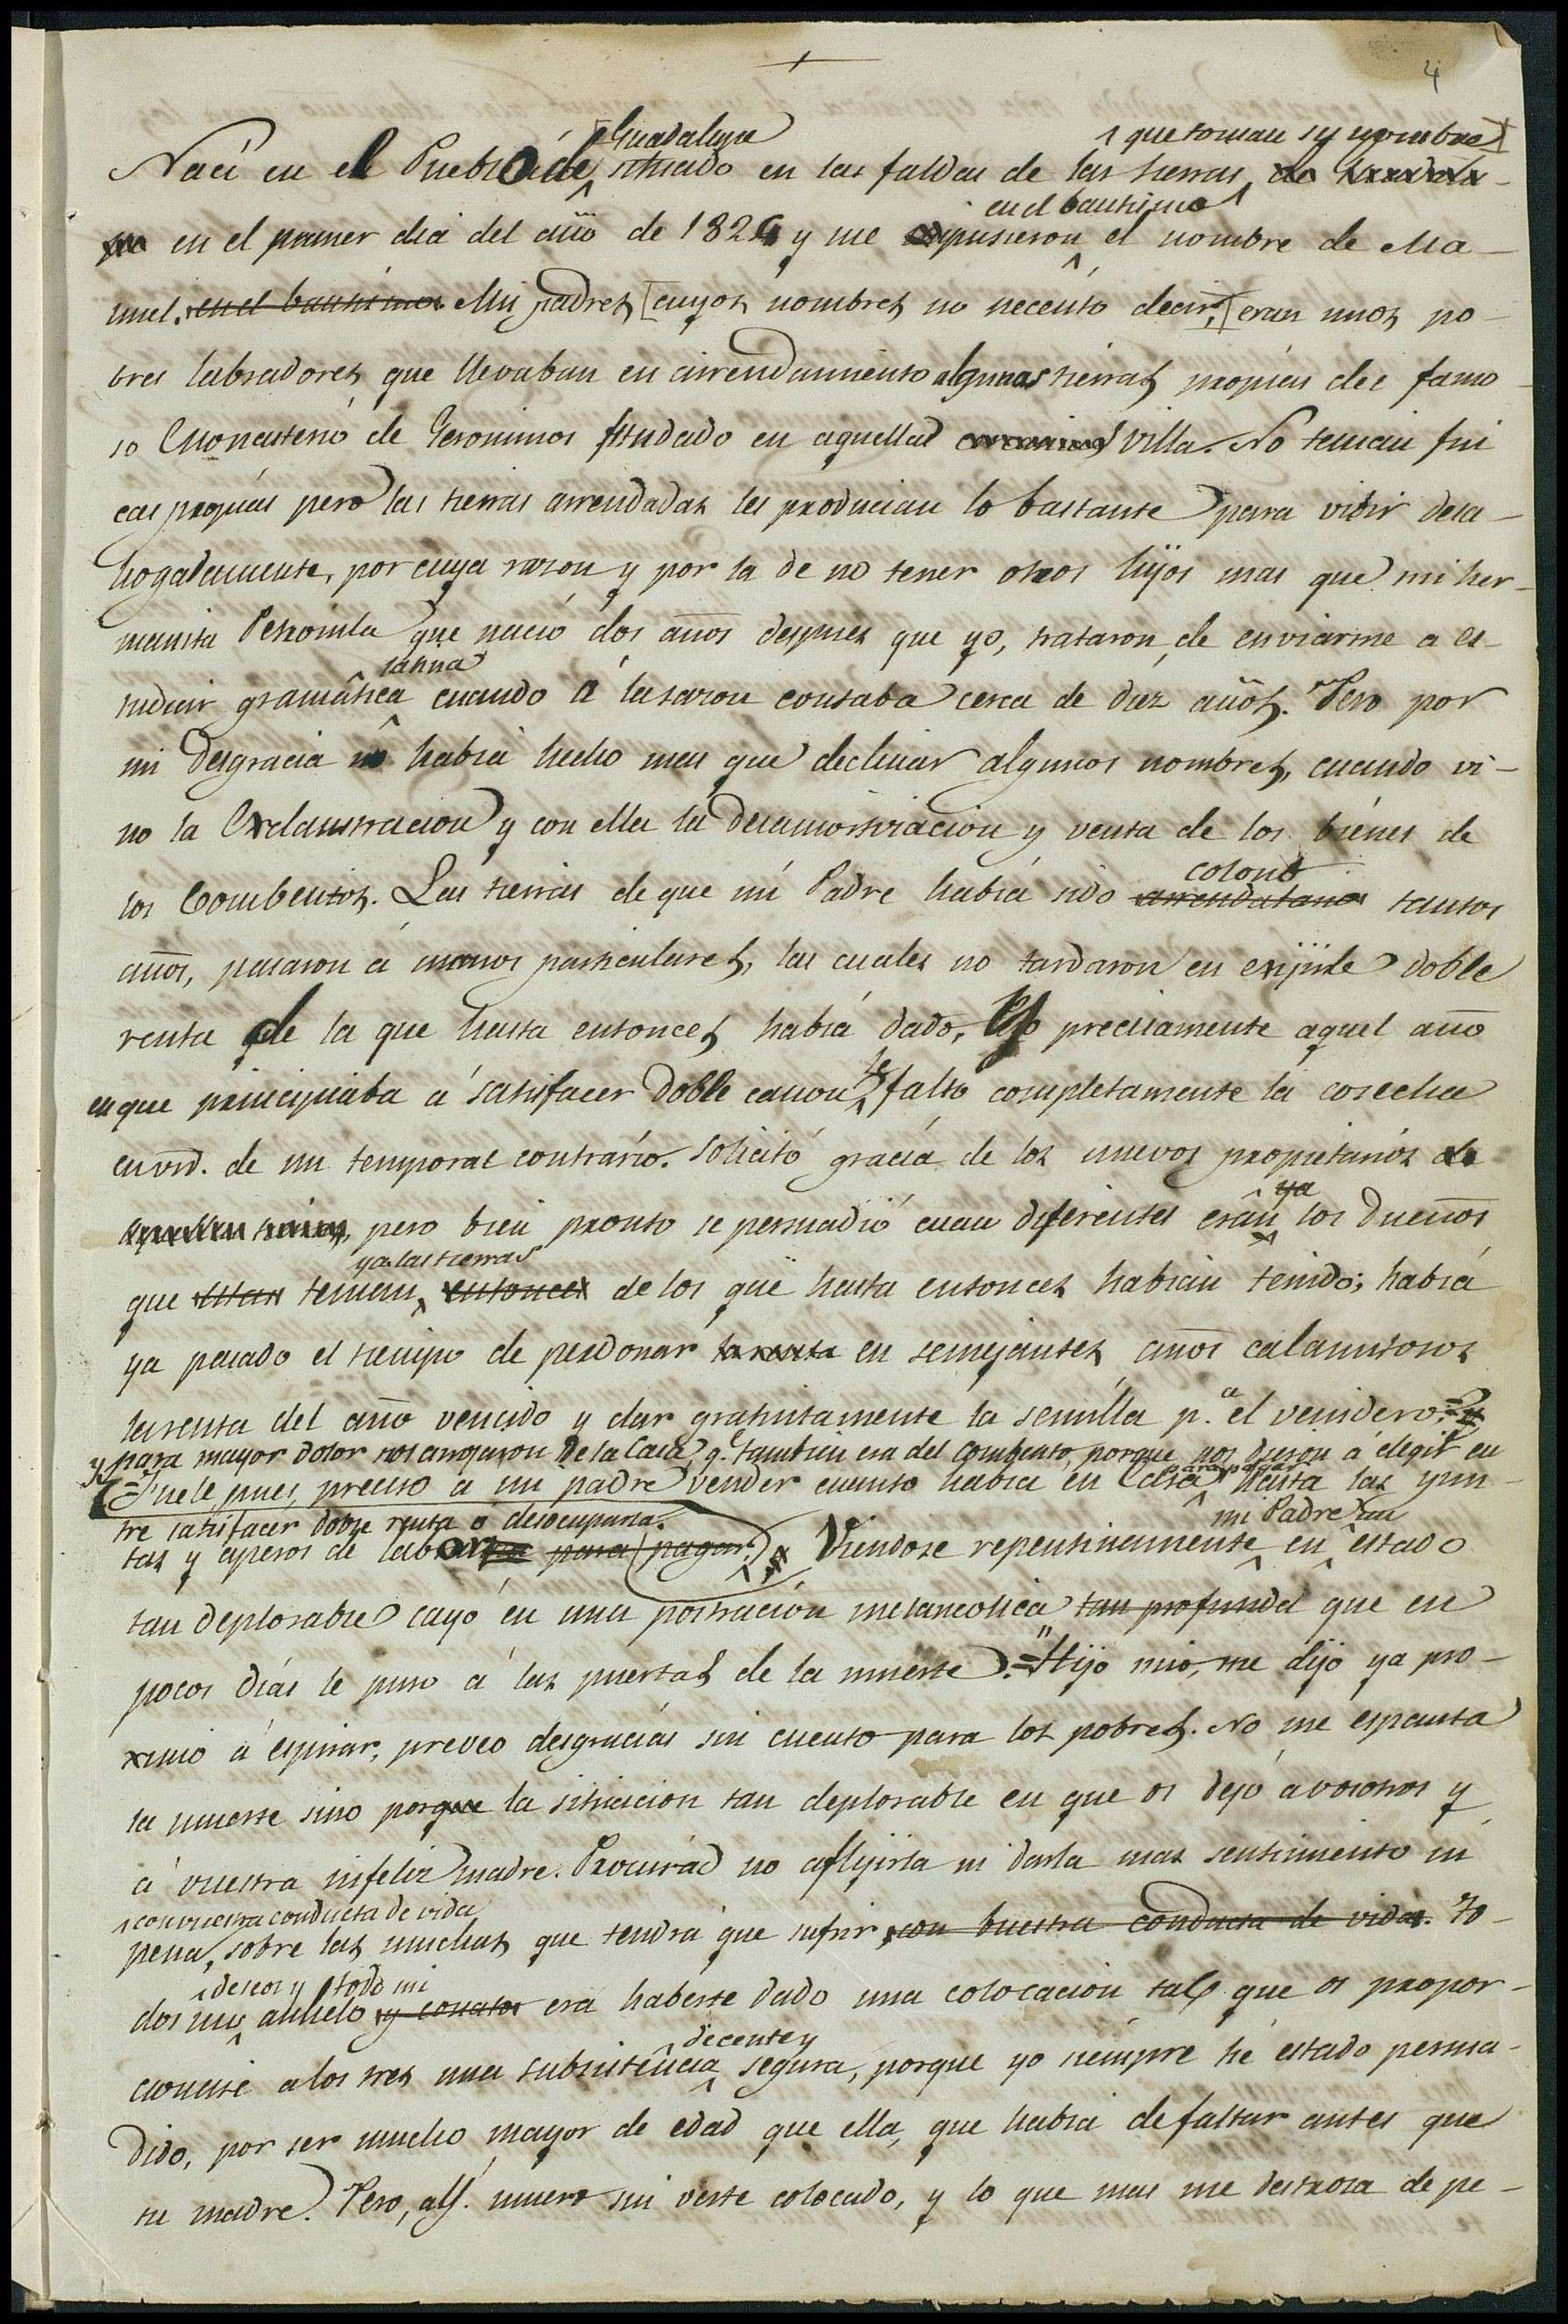 4
Guadalupe
que toman su nombre
Naci en el Pueblo de situado en las faldas de las sierras de
en el bautismo
en el primer dia del año de 1824 y me pusieron el nombre de Ma-
nuel. en el bautismo. Mis padres, cuyos nombres no necesito decir, eran unos po-
bres labradores que llevaban en arrendamiento algunas tierras propias del famo-
so Monasterio de Geronimos fundado en aquella villa. No tenian fin
cas propias pero las tierras arrendadas les producian lo bastante para vibir desa-
hogadamente, por cuya razon y por la de no tener otros hijos mas que mi her-
manita Petronila que nació dos años despues que yo, trataron de enviarme a es-
latina
tudiar gramática cuando á la sazon contaba cerca de diez años. Pero por
mi desgracia no habia hecho mas que declinar algunos nombres, cuando vi-
no la Exclaustracion y con ella la desamortizacion y venta de los bienes de
colono
los Combentos. Las tierras de que mi Padre habia sido arrendatario tantos
años, pasaron á manos particulares, las cuales no tardaron en exijirle doble
renta de la que hasta entonces habia dado. Y precisamente aquel año
le
en que principiaba á satisfacer doble canon faltó completamente la cosecha
en vrd. de un temporal contrario. Solicitó gracia de los nuevos propietarios de
ya
aquellas tierras, pero bien pronto se persuadió cuan diferentes eran los dueños
ya las tierras
que tenian entonces de los que hasta entonces habian tenido; habia
ya pasado el tiempo de perdonar la renta en semejantes años calamitosos
la renta del año vencido y dar gratuitamente la semilla p.a el venidero:
y para mayor dolor nos arrojaron de la Casa, q.e tambien era del combento, porque nos dieron á elegir en
para pagar
Fuele, pues, preciso a mi padre vender cuanto habia en Casa hasta las yun-
tre satisfacer doble renta o desocuparla.
mi Padre en un
tas y aperos de labor para pagar. Viendose repentinamente en estado
tan deplorable cayó en una postracion melancolica tan profunda que en
pocos dias le puso á las puertas de la muerte. = "Hijo mio, me dijo ya pro-
ximo á espirar, preveo desgracias sin cuento para los pobres. No me espanta
la muerte sino porque la situacion tan deplorable en que os dejo á vosotros y
á vuestra infeliz madre. Procurad no aflijirla ni darla mas sentimiento ni
con vuestra conducta de vida
pena, sobre las muchas que tendrá que sufrir, con buestra conducta de vida. To-
deseos y todo mi
dos mis anhelo y conatos era haberte dado una colocacion tal que os propor-
decente y
cionase a los tres una subsistencia segura, porque yo siempre he estado persua-
dido, por ser mucho mayor de edad que ella, que habia de faltar antes que
tu madre. Pero, ay!. muero sin verte colocado, y lo que mas me destroza de pe-